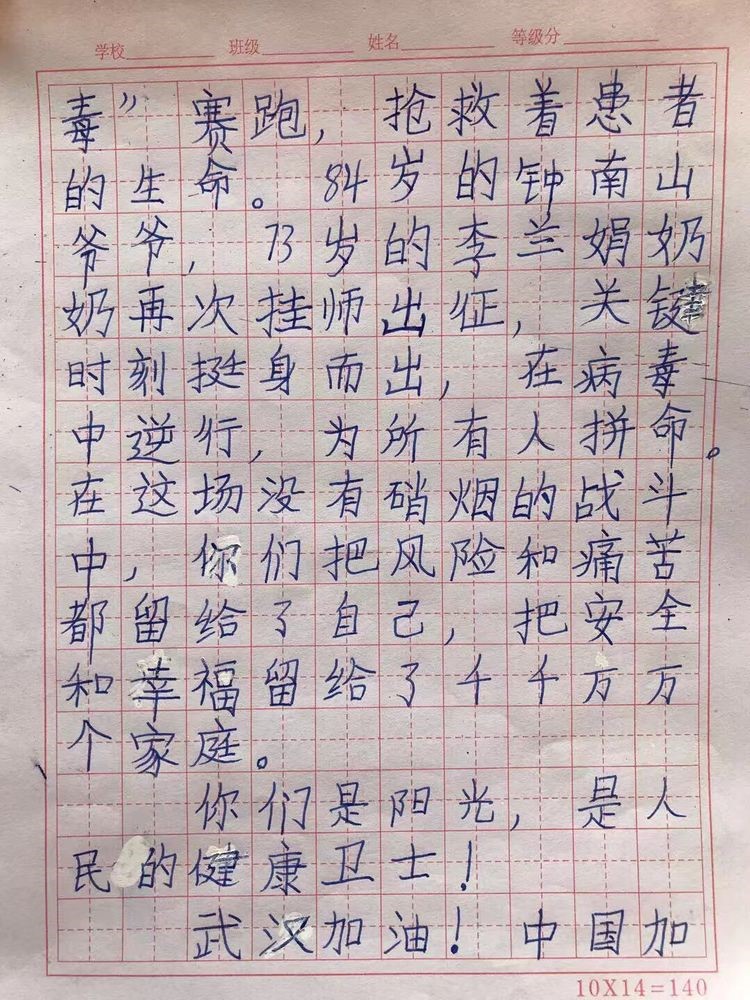 学校 班级 姓名 等级分
毒”赛跑，抢救着患者
的生命。84岁的钟南山
爷爷，73岁的李兰娟奶
奶再次挂师出征，关键
时刻挺身而出，在病毒
中逆行，为所有人拼命。
在这场没有硝烟的战斗
中，你们把风险和痛苦
都留给了自己，把安全
和幸福留给了千千万万
个家庭。
你们是阳光，是人
民的健康卫士！
武汉加油！中国加
10X14=140